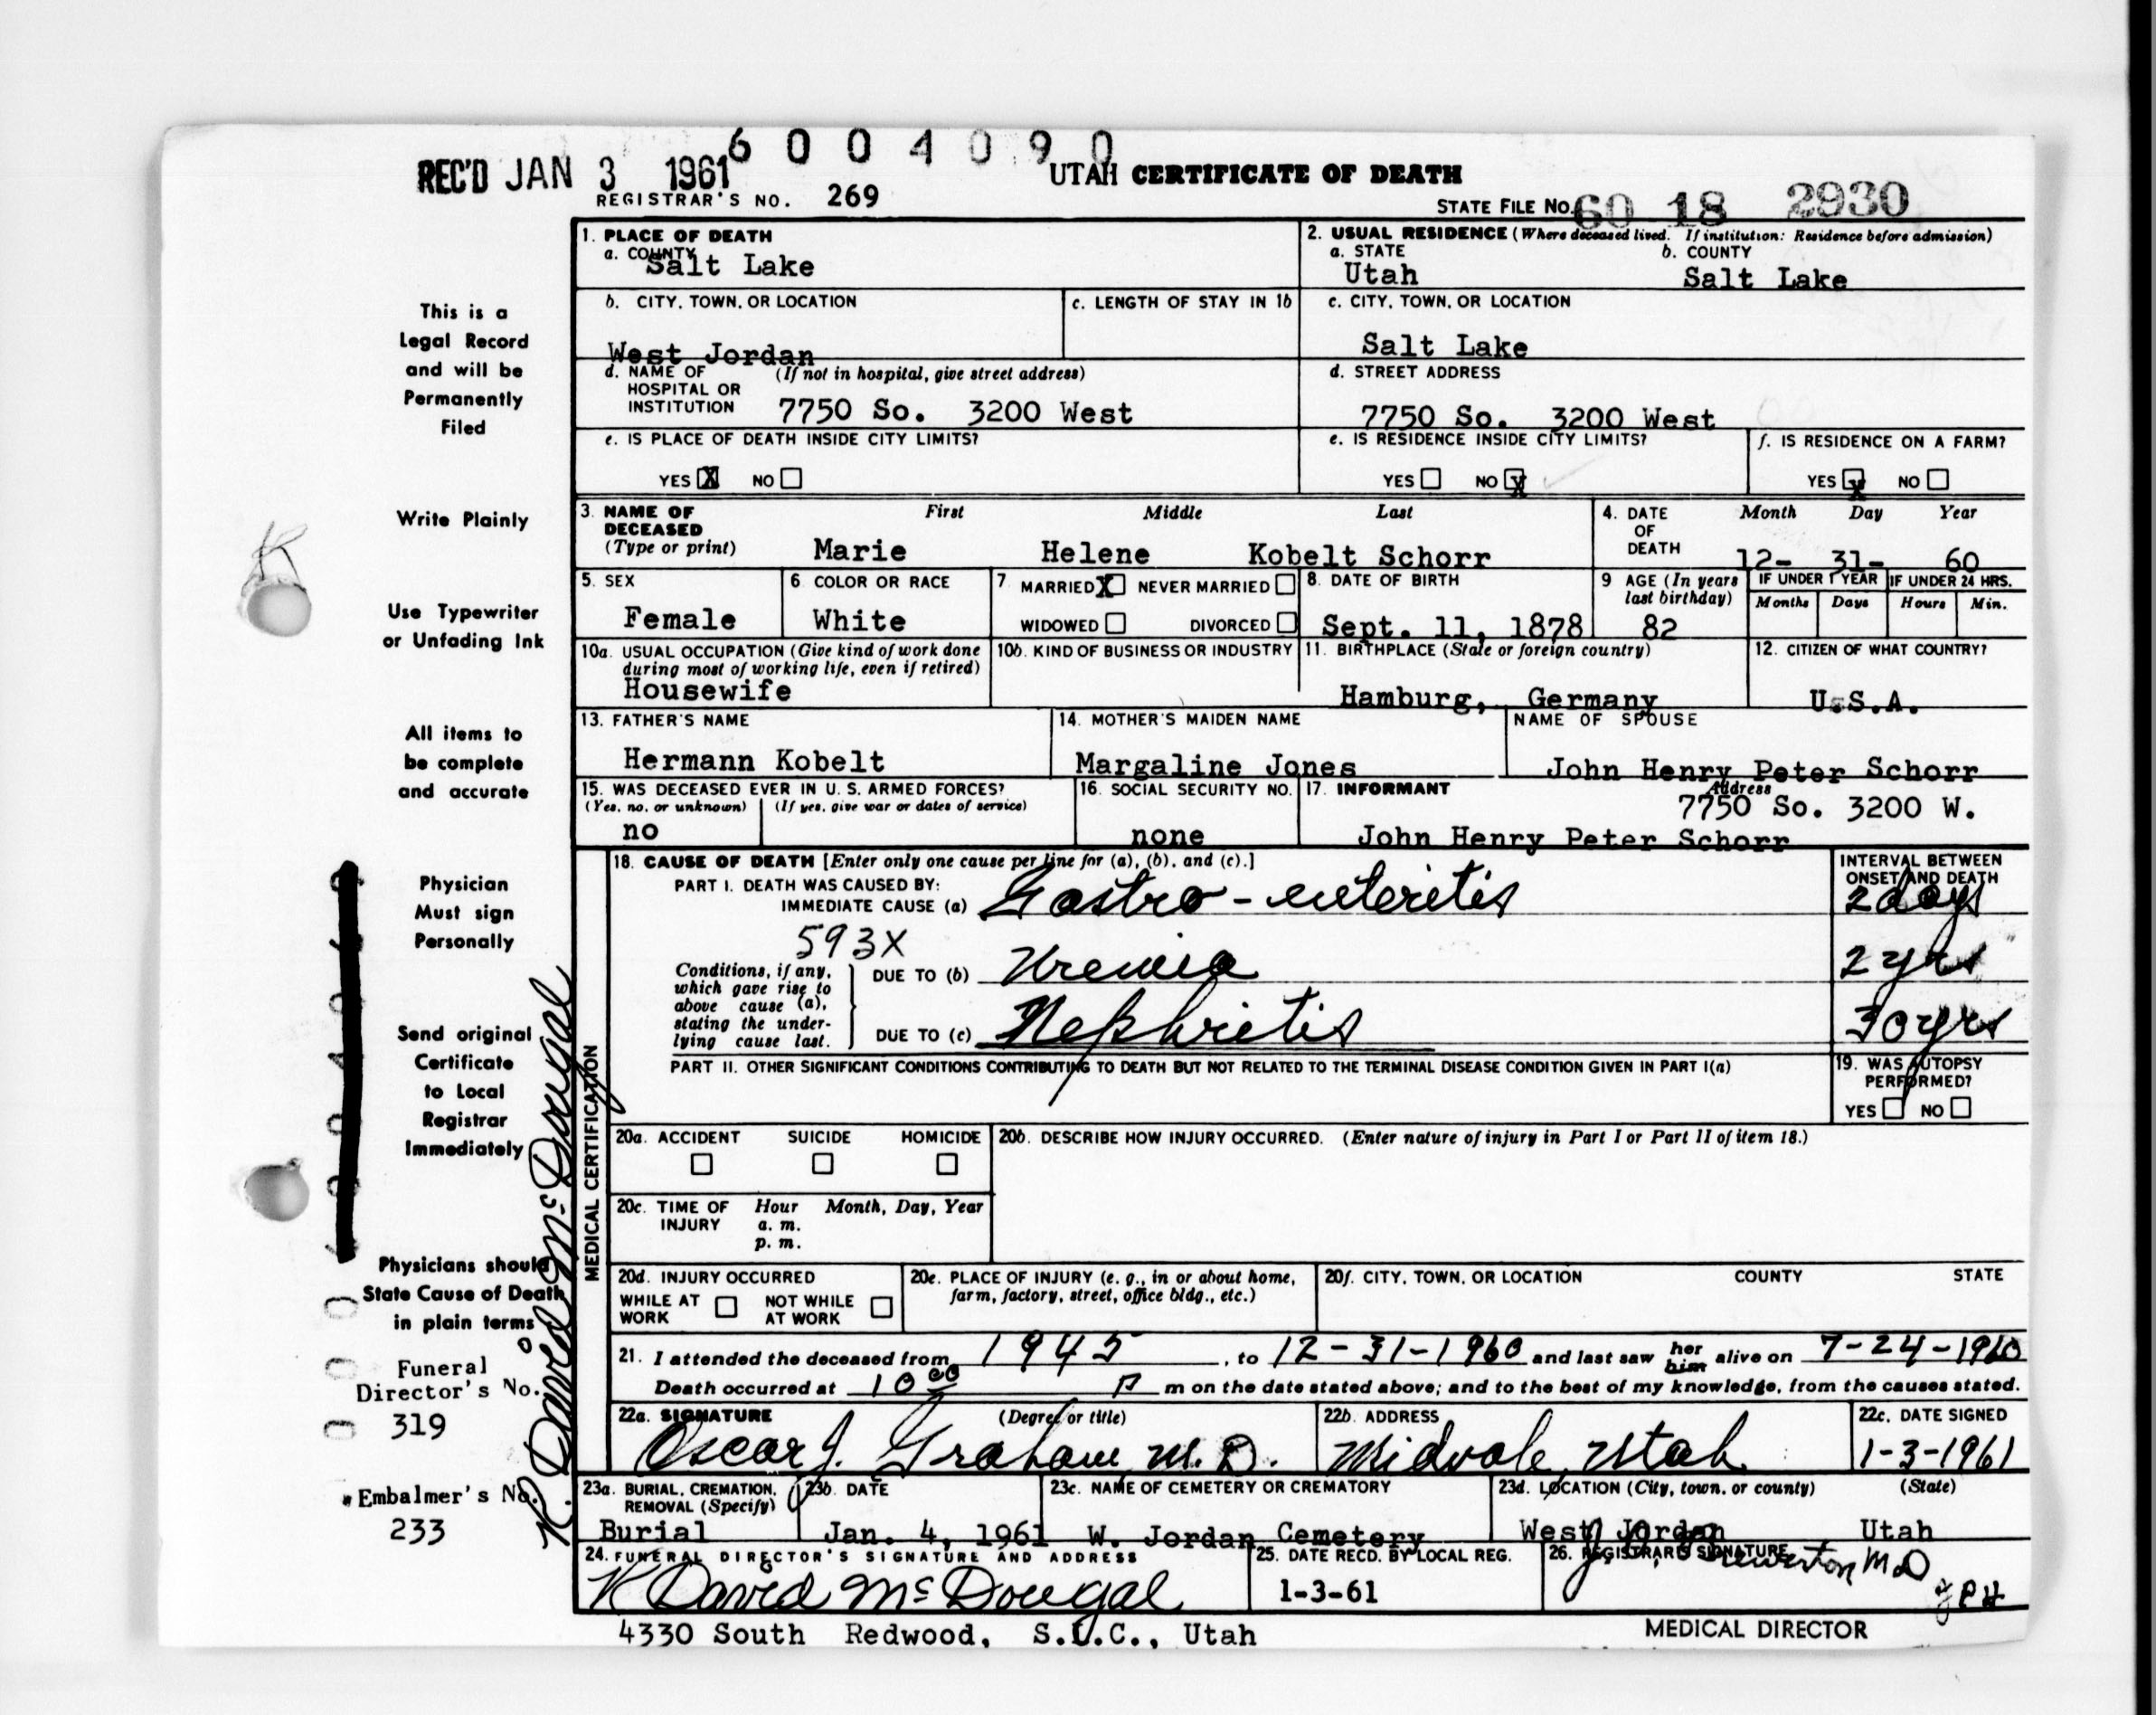 6 0 0 4 0 9 0
REC'D JAN 3 1961
UTAH CERTIFICATE OF DEATH
REGISTRAR'S NO. 269
STATE FILE NO. 60 18 2930
1. PLACE OF DEATH
a. COUNTY
Salt Lake
2. USUAL RESIDENCE (Where deceased lived. If institution: Residence before admission)
a. STATE
Utah
b. COUNTY
Salt Lake
b. CITY, TOWN, OR LOCATION
West Jordan
c. LENGTH OF STAY IN 1b
c. CITY, TOWN, OR LOCATION
Salt Lake
d. NAME OF HOSPITAL OR INSTITUTION
(If not in hospital, give street address)
7750 So. 3200 West
d. STREET ADDRESS
7750 So. 3200 West
e. IS PLACE OF DEATH INSIDE CITY LIMITS?
YES X NO
e. IS RESIDENCE INSIDE CITY LIMITS?
YES NO X
f. IS RESIDENCE ON A FARM?
YES X NO
3. NAME OF DECEASED
(Type or print)
First Middle Last
Marie Helene Kobelt Schorr
4. DATE OF DEATH
Month Day Year
12- 31- 60
5. SEX
Female
6. COLOR OR RACE
White
7. MARRIED X NEVER MARRIED
WIDOWED DIVORCED
8. DATE OF BIRTH
Sept. 11, 1878
9. AGE (In years last birthday)
82
IF UNDER 1 YEAR
Months Days
IF UNDER 24 HRS.
Hours Min.
10a. USUAL OCCUPATION (Give kind of work done during most of working life, even if retired)
Housewife
10b. KIND OF BUSINESS OR INDUSTRY
11. BIRTHPLACE (State or foreign country)
Hamburg, Germany
12. CITIZEN OF WHAT COUNTRY?
U.S.A.
13. FATHER'S NAME
Hermann Kobelt
14. MOTHER'S MAIDEN NAME
Margaline Jones
NAME OF SPOUSE
John Henry Peter Schorr
15. WAS DECEASED EVER IN U. S. ARMED FORCES?
(Yes, no, or unknown) (If yes, give war or dates of service)
no
16. SOCIAL SECURITY NO.
none
17. INFORMANT
Address
7750 So. 3200 W.
John Henry Peter Schorr
18. CAUSE OF DEATH [Enter only one cause per line for (a), (b), and (c).]
PART I. DEATH WAS CAUSED BY:
IMMEDIATE CAUSE (a) Gastro-enteritis
593X
Conditions, if any, which gave rise to above cause (a), stating the underlying cause last.
DUE TO (b) Uremia
DUE TO (c) Nephritis
INTERVAL BETWEEN ONSET AND DEATH
2 days
2 yrs
30 yrs
PART II. OTHER SIGNIFICANT CONDITIONS CONTRIBUTING TO DEATH BUT NOT RELATED TO THE TERMINAL DISEASE CONDITION GIVEN IN PART I(a)
19. WAS AUTOPSY PERFORMED?
YES NO
MEDICAL CERTIFICATION
20a. ACCIDENT SUICIDE HOMICIDE
20b. DESCRIBE HOW INJURY OCCURRED. (Enter nature of injury in Part I or Part II of item 18.)
20c. TIME OF INJURY
Hour Month, Day, Year
a. m.
p. m.
20d. INJURY OCCURRED
WHILE AT WORK NOT WHILE AT WORK
20e. PLACE OF INJURY (e. g., in or about home, farm, factory, street, office bldg., etc.)
20f. CITY, TOWN, OR LOCATION COUNTY STATE
21. I attended the deceased from 1945, to 12-31-1960 and last saw her him alive on 7-24-1960
Death occurred at 10 00 P m on the date stated above; and to the best of my knowledge, from the causes stated.
22a. SIGNATURE (Degree or title)
Oscar J. Graham M.D.
22b. ADDRESS
Midvale, Utah
22c. DATE SIGNED
1-3-1961
23a. BURIAL, CREMATION, REMOVAL (Specify)
Burial
23b. DATE
Jan. 4, 1961
23c. NAME OF CEMETERY OR CREMATORY
W. Jordan Cemetery
23d. LOCATION (City, town, or county) (State)
West Jordan Utah
24. FUNERAL DIRECTOR'S SIGNATURE AND ADDRESS
R David McDougal
4330 South Redwood, S.L.C., Utah
25. DATE RECD. BY LOCAL REG.
1-3-61
26. REGISTRAR'S SIGNATURE
M D
MEDICAL DIRECTOR
This is a
Legal Record
and will be
Permanently
Filed
Write Plainly
Use Typewriter
or Unfading Ink
All items to
be complete
and accurate
Physician
Must sign
Personally
Send original
Certificate
to Local
Registrar
Immediately
Physicians should
State Cause of Death
in plain terms
Funeral
Director's No.
319
Embalmer's No.
233
R. David McDougal